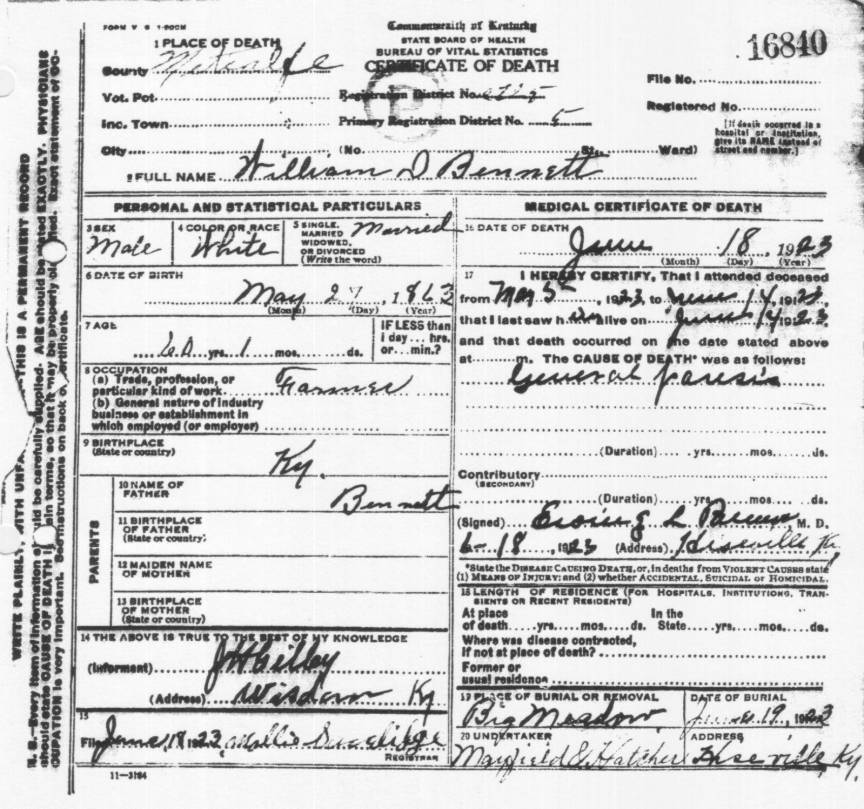 FORM V S 1-50CM
Commonwealth of Kentucky
STATE BOARD OF HEALTH
BUREAU OF VITAL STATISTICS
CERTIFICATE OF DEATH
16840
1 PLACE OF DEATH
County Metcalfe
Vot. Pct.
Inc. Town
City (No. St. Ward)
Registration District No.
Primary Registration District No. 5
File No.
Registered No.
[If death occurred in a hospital or institution, give its NAME instead of street and number.]
2 FULL NAME William D Bennett
PERSONAL AND STATISTICAL PARTICULARS
3 SEX
Male
4 COLOR OR RACE
White
5 SINGLE, MARRIED, WIDOWED, OR DIVORCED (Write the word)
Married
6 DATE OF BIRTH
May 27, 1863
(Month) (Day) (Year)
7 AGE
60 yrs. 1 mos. ds.
IF LESS than 1 day... hrs. or... min.?
8 OCCUPATION
(a) Trade, profession, or particular kind of work Farmer
(b) General nature of industry business or establishment in which employed (or employer)
9 BIRTHPLACE
(State or country)
Ky.
PARENTS
10 NAME OF FATHER
Bennett
11 BIRTHPLACE OF FATHER
(State or country)
12 MAIDEN NAME OF MOTHER
13 BIRTHPLACE OF MOTHER
(State or country)
14 THE ABOVE IS TRUE TO THE BEST OF MY KNOWLEDGE
(Informant) J H
(Address) Wisdom Ky
15
Filed June 18 1923 Mollie
REGISTRAR
11—3184
MEDICAL CERTIFICATE OF DEATH
16 DATE OF DEATH
June 18, 1923
(Month) (Day) (Year)
17 I HEREBY CERTIFY, That I attended deceased
from May 5, 1923 to June 14, 1923
that I last saw him alive on June 14 1923
and that death occurred on the date stated above
at m. The CAUSE OF DEATH* was as follows:
General Paresis
(Duration) yrs. mos. ds.
Contributory
(SECONDARY)
(Duration) yrs. mos. ds
(Signed) M. D.
6-18, 1923 (Address) Hiseville Ky
*State the DISEASE CAUSING DEATH, or, in deaths from VIOLENT CAUSES state
(1) MEANS OF INJURY; and (2) whether ACCIDENTAL, SUICIDAL or HOMICIDAL.
18 LENGTH OF RESIDENCE (FOR HOSPITALS, INSTITUTIONS, TRANSIENTS OR RECENT RESIDENTS)
At place of death yrs. mos. ds. In the State yrs. mos. ds.
Where was disease contracted,
If not at place of death?
Former or
usual residence
19 PLACE OF BURIAL OR REMOVAL
Big Meadow
DATE OF BURIAL
June 19, 1923
20 UNDERTAKER
Mayfield & Hatcher
ADDRESS
Hiseville, Ky.
WRITE PLAINLY, WITH UNFA THIS IS A PERMANENT RECORD
N. B.—Every item of information should be carefully supplied. AGE should be stated EXACTLY. PHYSICIANS
should state CAUSE OF DEATH in plain terms, so that it may be properly classified. Exact statement of OCCUPATION is very important. See instructions on back of certificate.